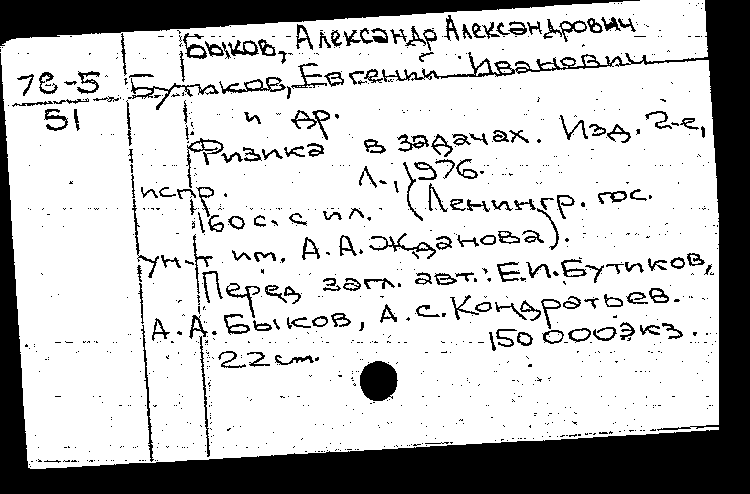 Быков, Александр Александрович
78-5 Бутиков, Евгений Иванович
51 и др.
Физика в задачах. Изд. 2-е,
испр. Л., 1976.
160 с. с ил. (Ленингр. гос.
ун-т им. А.А. Жданова).
Перед загл. авт.: Е.И. Бутиков,
А.А. Быков, А.С. Кондратьев.
22 см. 150 000 экз.